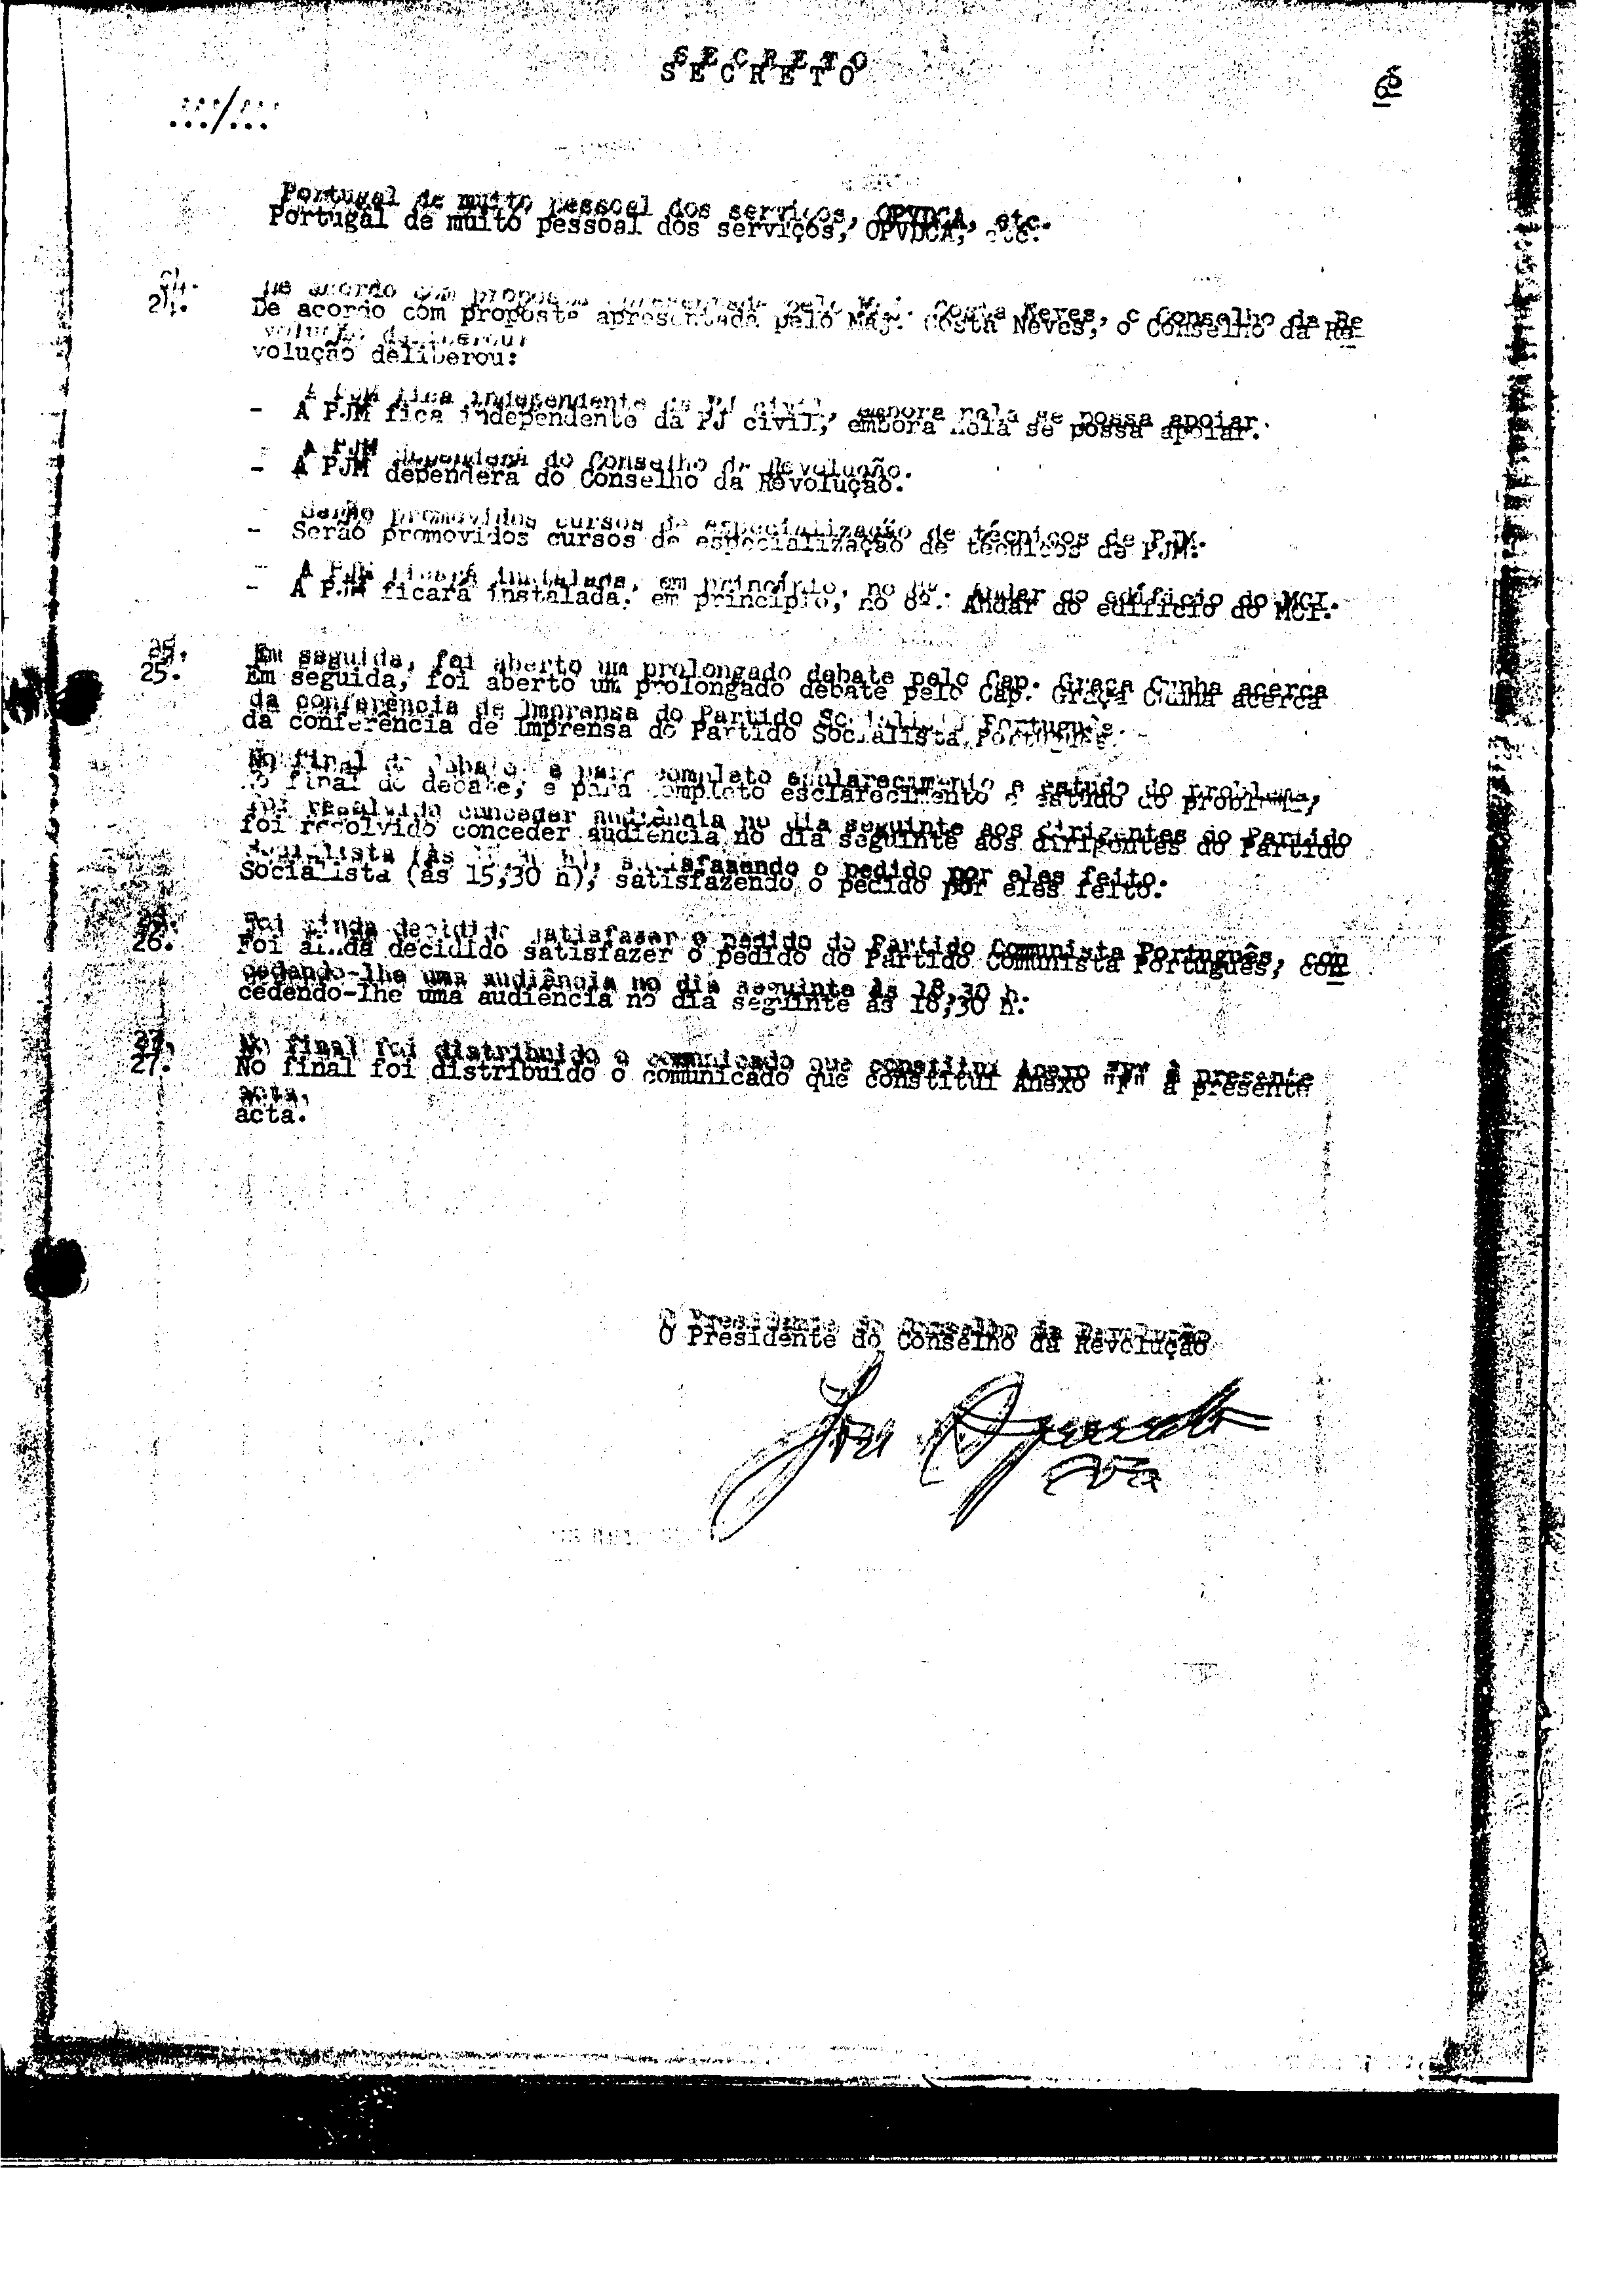 S E C R E T O
.../...
Portugal de muito pessoal dos serviços, OPVDCA, etc.
24. De acordo com proposta apresentada pelo Maj. Costa Neves, o Conselho da Re
volução deliberou:
- A PJM fica independente da PJ civil, embora nela se possa apoiar.
- A PJM dependerá do Conselho da Revolução.
- Serão promovidos cursos de especialização de técnicos de PJM.
- A PJM ficará instalada, em princípio, no 8º. Andar do edifício do MCI.
25. Em seguida, foi aberto um prolongado debate pelo Cap. Graça Cunha acerca
da conferência de Imprensa do Partido Socialista Português.
No final do debate, e para completo esclarecimento e estudo do problema,
foi resolvido conceder audiência no dia seguinte aos dirigentes do Partido
Socialista (às 15,30 h), satisfazendo o pedido por eles feito.
26. Foi ainda decidido satisfazer o pedido do Partido Comunista Português, con
cedendo-lhe uma audiência no dia seguinte às 18,30 h.
27. No final foi distribuido o comunicado que constitui Anexo "F" à presente
acta.
O Presidente do Conselho da Revolução